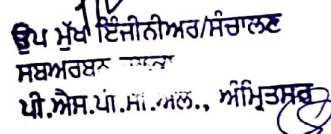 ਉਪ ਮੁੱਖ ਇੰਜੀਨੀਅਰ/ਸੰਚਾਲਣ
ਸਬਅਰਬਨ
ਪੀ.ਐਸ.ਪੀ.ਸੀ.ਐਲ., ਅੰਮ੍ਰਿਤਸਰ